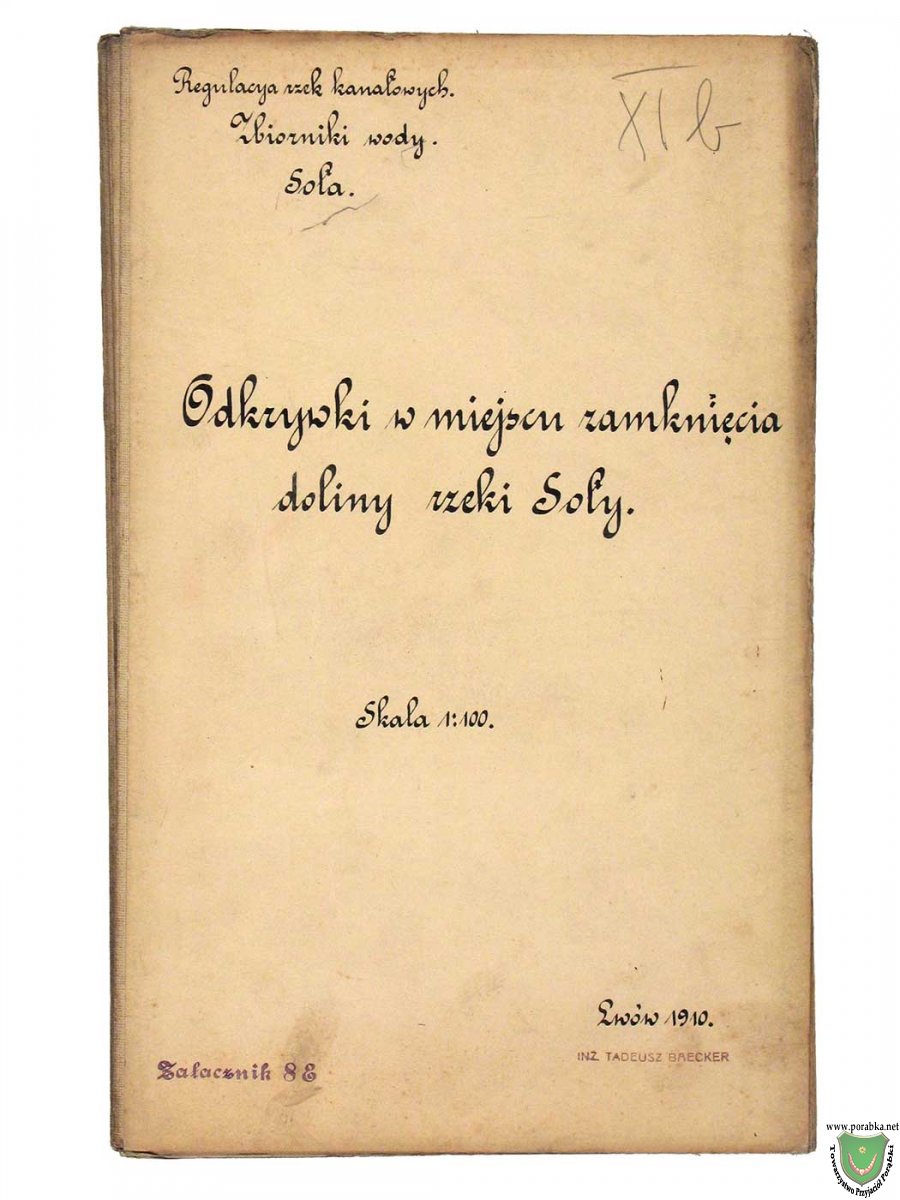 Regulacya rzek kanałowych.
XI b
Zbiorniki wody.
Soła.
Odkrywki w miejscu zamknięcia
doliny rzeki Soły.
Skala 1:100.
Lwów 1910.
INŻ. TADEUSZ BAECKER
Załacznik 8E
www.porabka.net
Towarzystwo Przyjaciół Porąbki